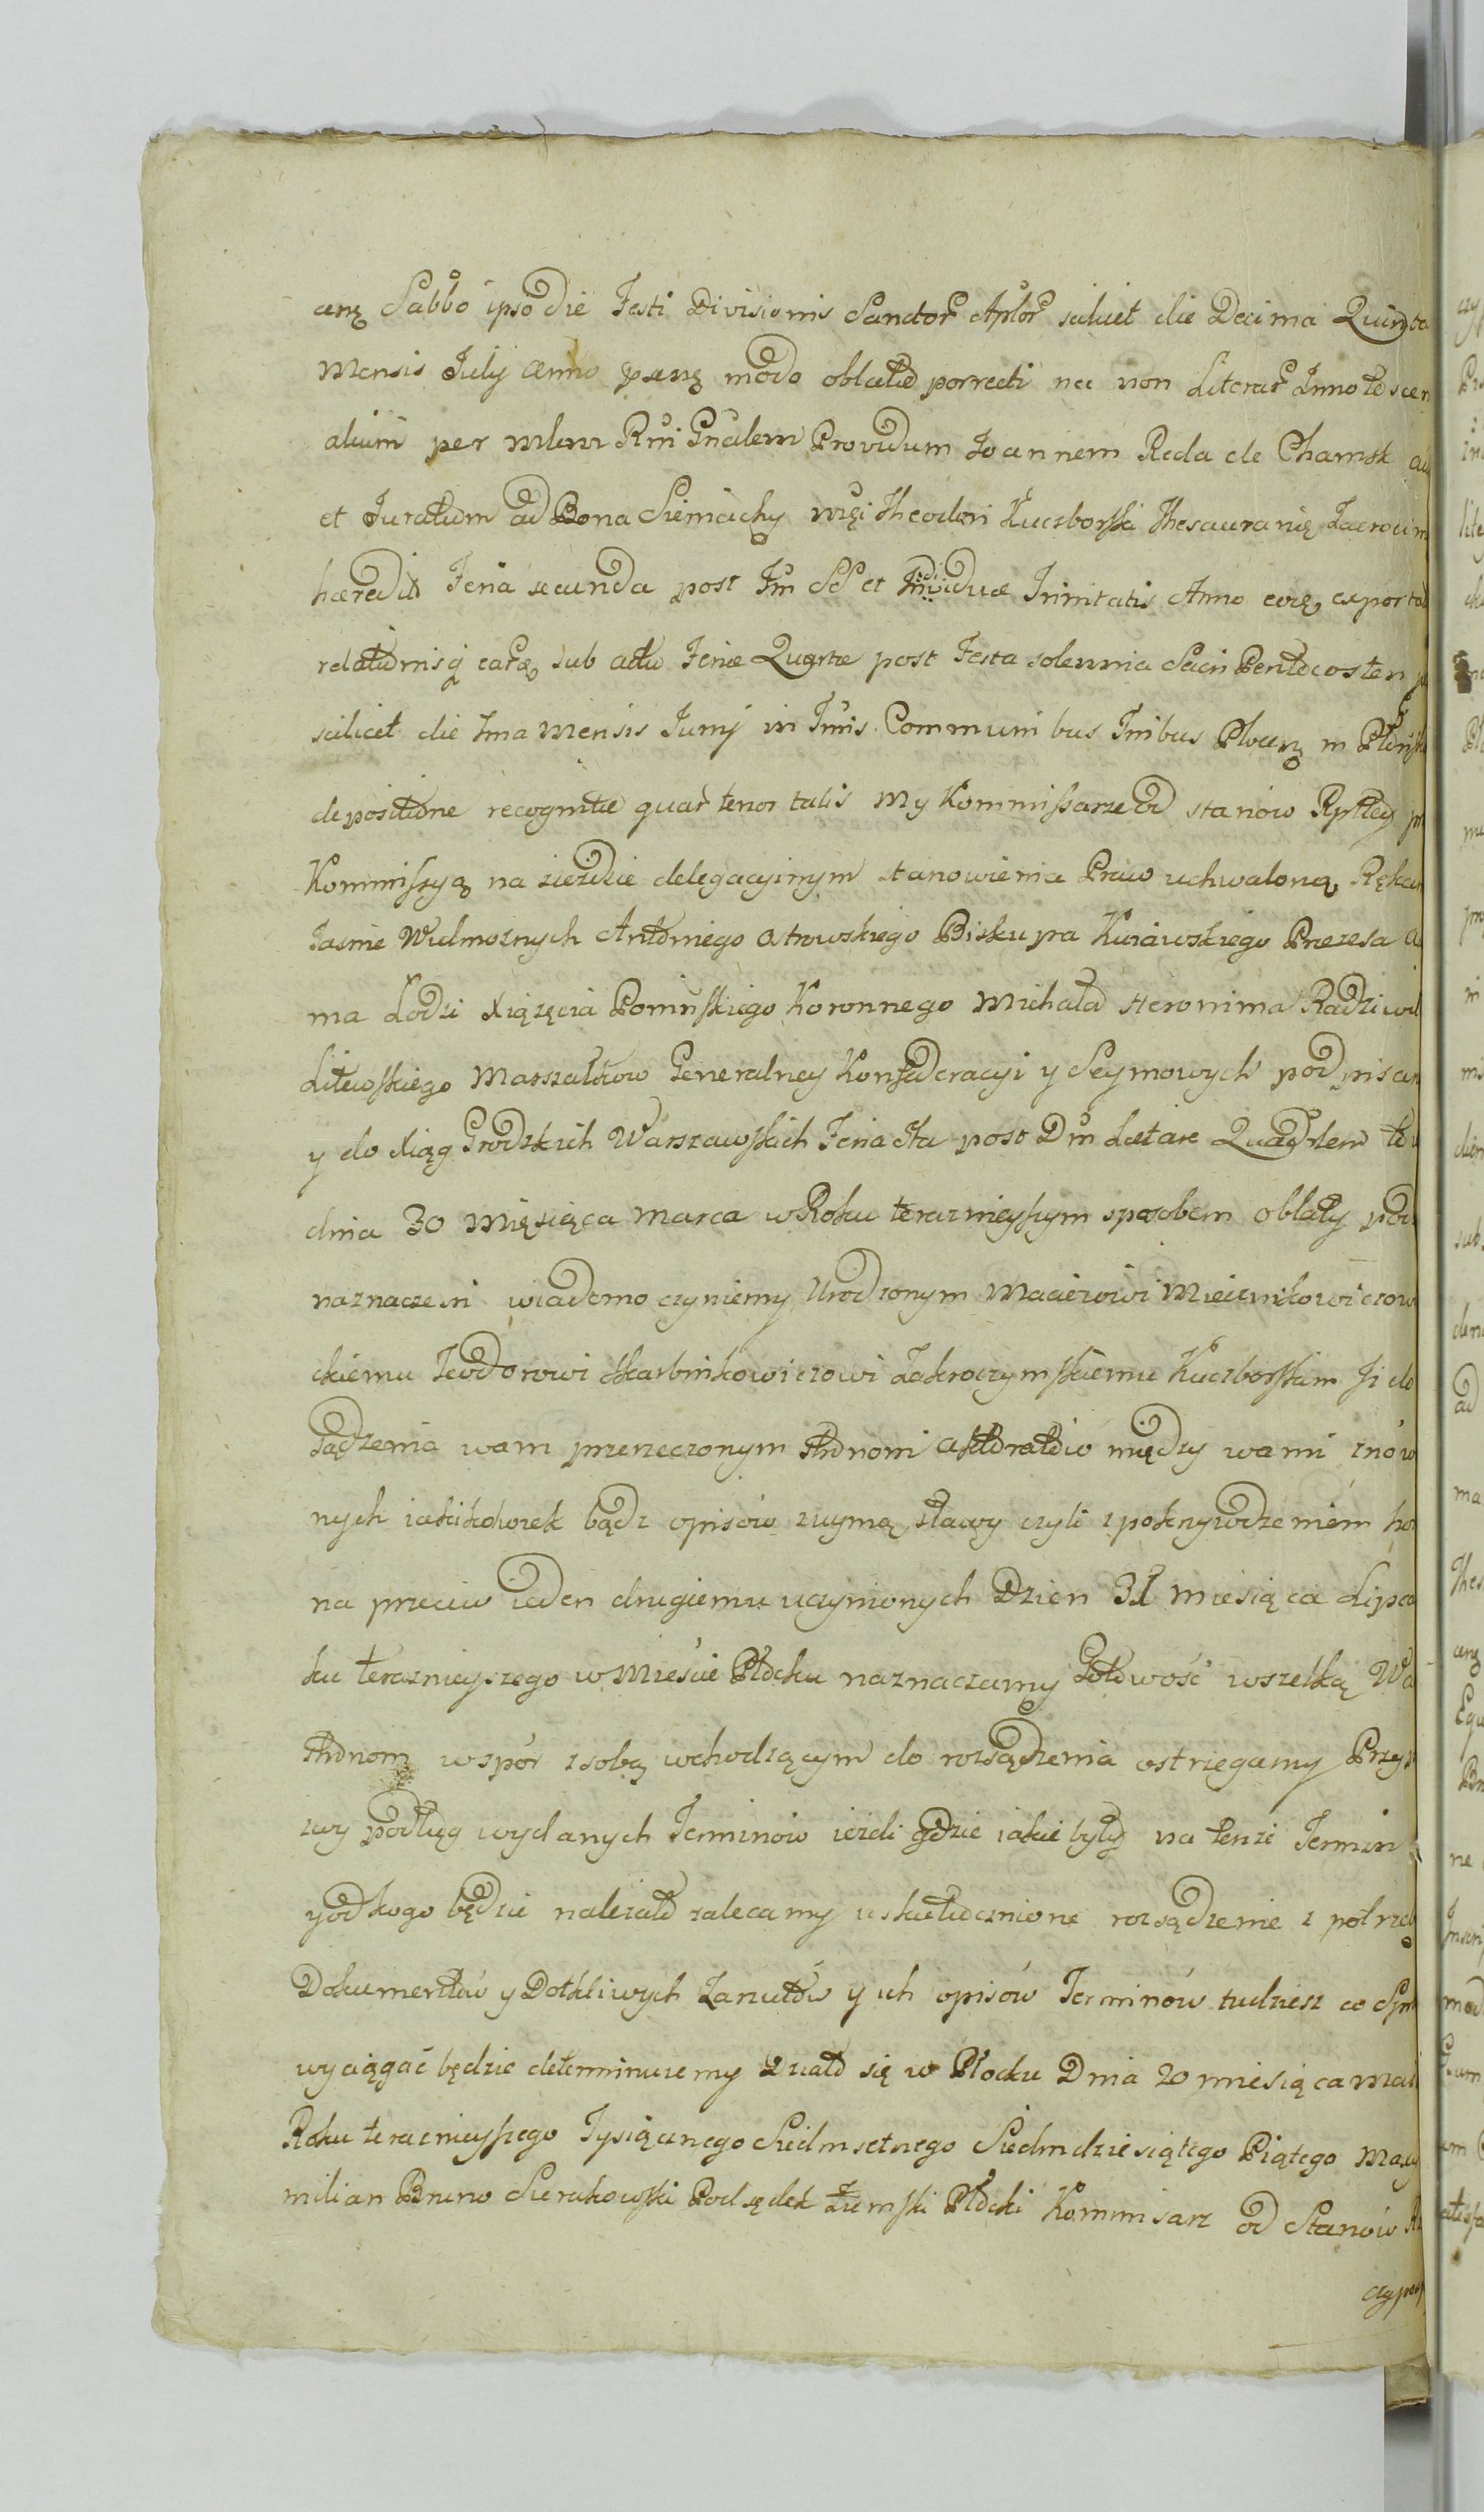 Sabbo ipso die Festi Divisionis Sanctor Aplor scilicet die Decima Quinta
Mensis July Anno modo oblatae porrecti nec non Literar Innotescen
alium per mlem Rni Gnalem Providum Joannem Reda de Chamsk
et Juratum ad Bona Siemiachy Theodori Kuczborski Thesauranię Zacrocim
haeredis Feria secunda post Fm SS et Individuae Trinitatis Anno eorę exporta
relationisq earę sub actu Feriae Quartae post Festa solennia Sacri Pentecosten
scilicet die Ima Mensis Junij in Tmis Communibus Tribus Plocen in Płońsk
depositione recognitae quar tenor talis My Kommissarze od stanow Rpltey
Kommissyą na zieździe delegacyinym stanowienia Praw uchwaloną Rękam
Jasnie Wielmoznych Antoniego Ostrowskiego Biskupa Kuiawskiego Prezesa A
ma Łodzi Xiążęcia Poninskiego Koronnego Michała Heronima Radziwił
Litewskiego Marszałkow Generalney Konfederacyi y Seymowych podpisan
y do Xiąg Grodzkich Warszawskich Feria 5ta post Dm Laetare Quadrlem
dnia 30 Mięsięca Marca w Roku terazniejszym sposobem oblaty pod
naznaczeni wiadomo czyniemy Urodzonym Macieiowi Miecznikowiczow
ckiemu Teodorowi Skarbnikowiczowi Zakroczymskiemu Kuczborskim Iż do
sądzenia wam przerzeczonym stronom aktoratow między wami
nych iakichkolwiek bądz opisow zuymą sławy czyli z pokrzywdzeniem
na przeciw ieden drugiemu uczynionych Dzien 31 miesiąca Lipca
ku terazniejszego w Miescie Płocku naznaczamy Gotowość wszelką Wa
stronom w spór z sobą wchodzącym do rozsądzenia ostrzegamy Przy
zwy podług wydanych Terminow ieżeli gdzie iakie były na tenże Termin
y od kogo będzie należało zalecamy uskutecznione rozsądzenie z potrzeb
Dokumentów y Dotkliwych Zarzutów y ich opisów Terminów tudziesz co
wyciągać będzie determinuiemy Działo się w Płocku Dnia 20 miesiąca Mai
Roku terazniejszego Tysiącznego Siedmsetnego Siedmdziesiątego Piątego Maxy
milian Bruno Sierakowski Podsędek Ziemski Płocki Kommisarz od Stanów